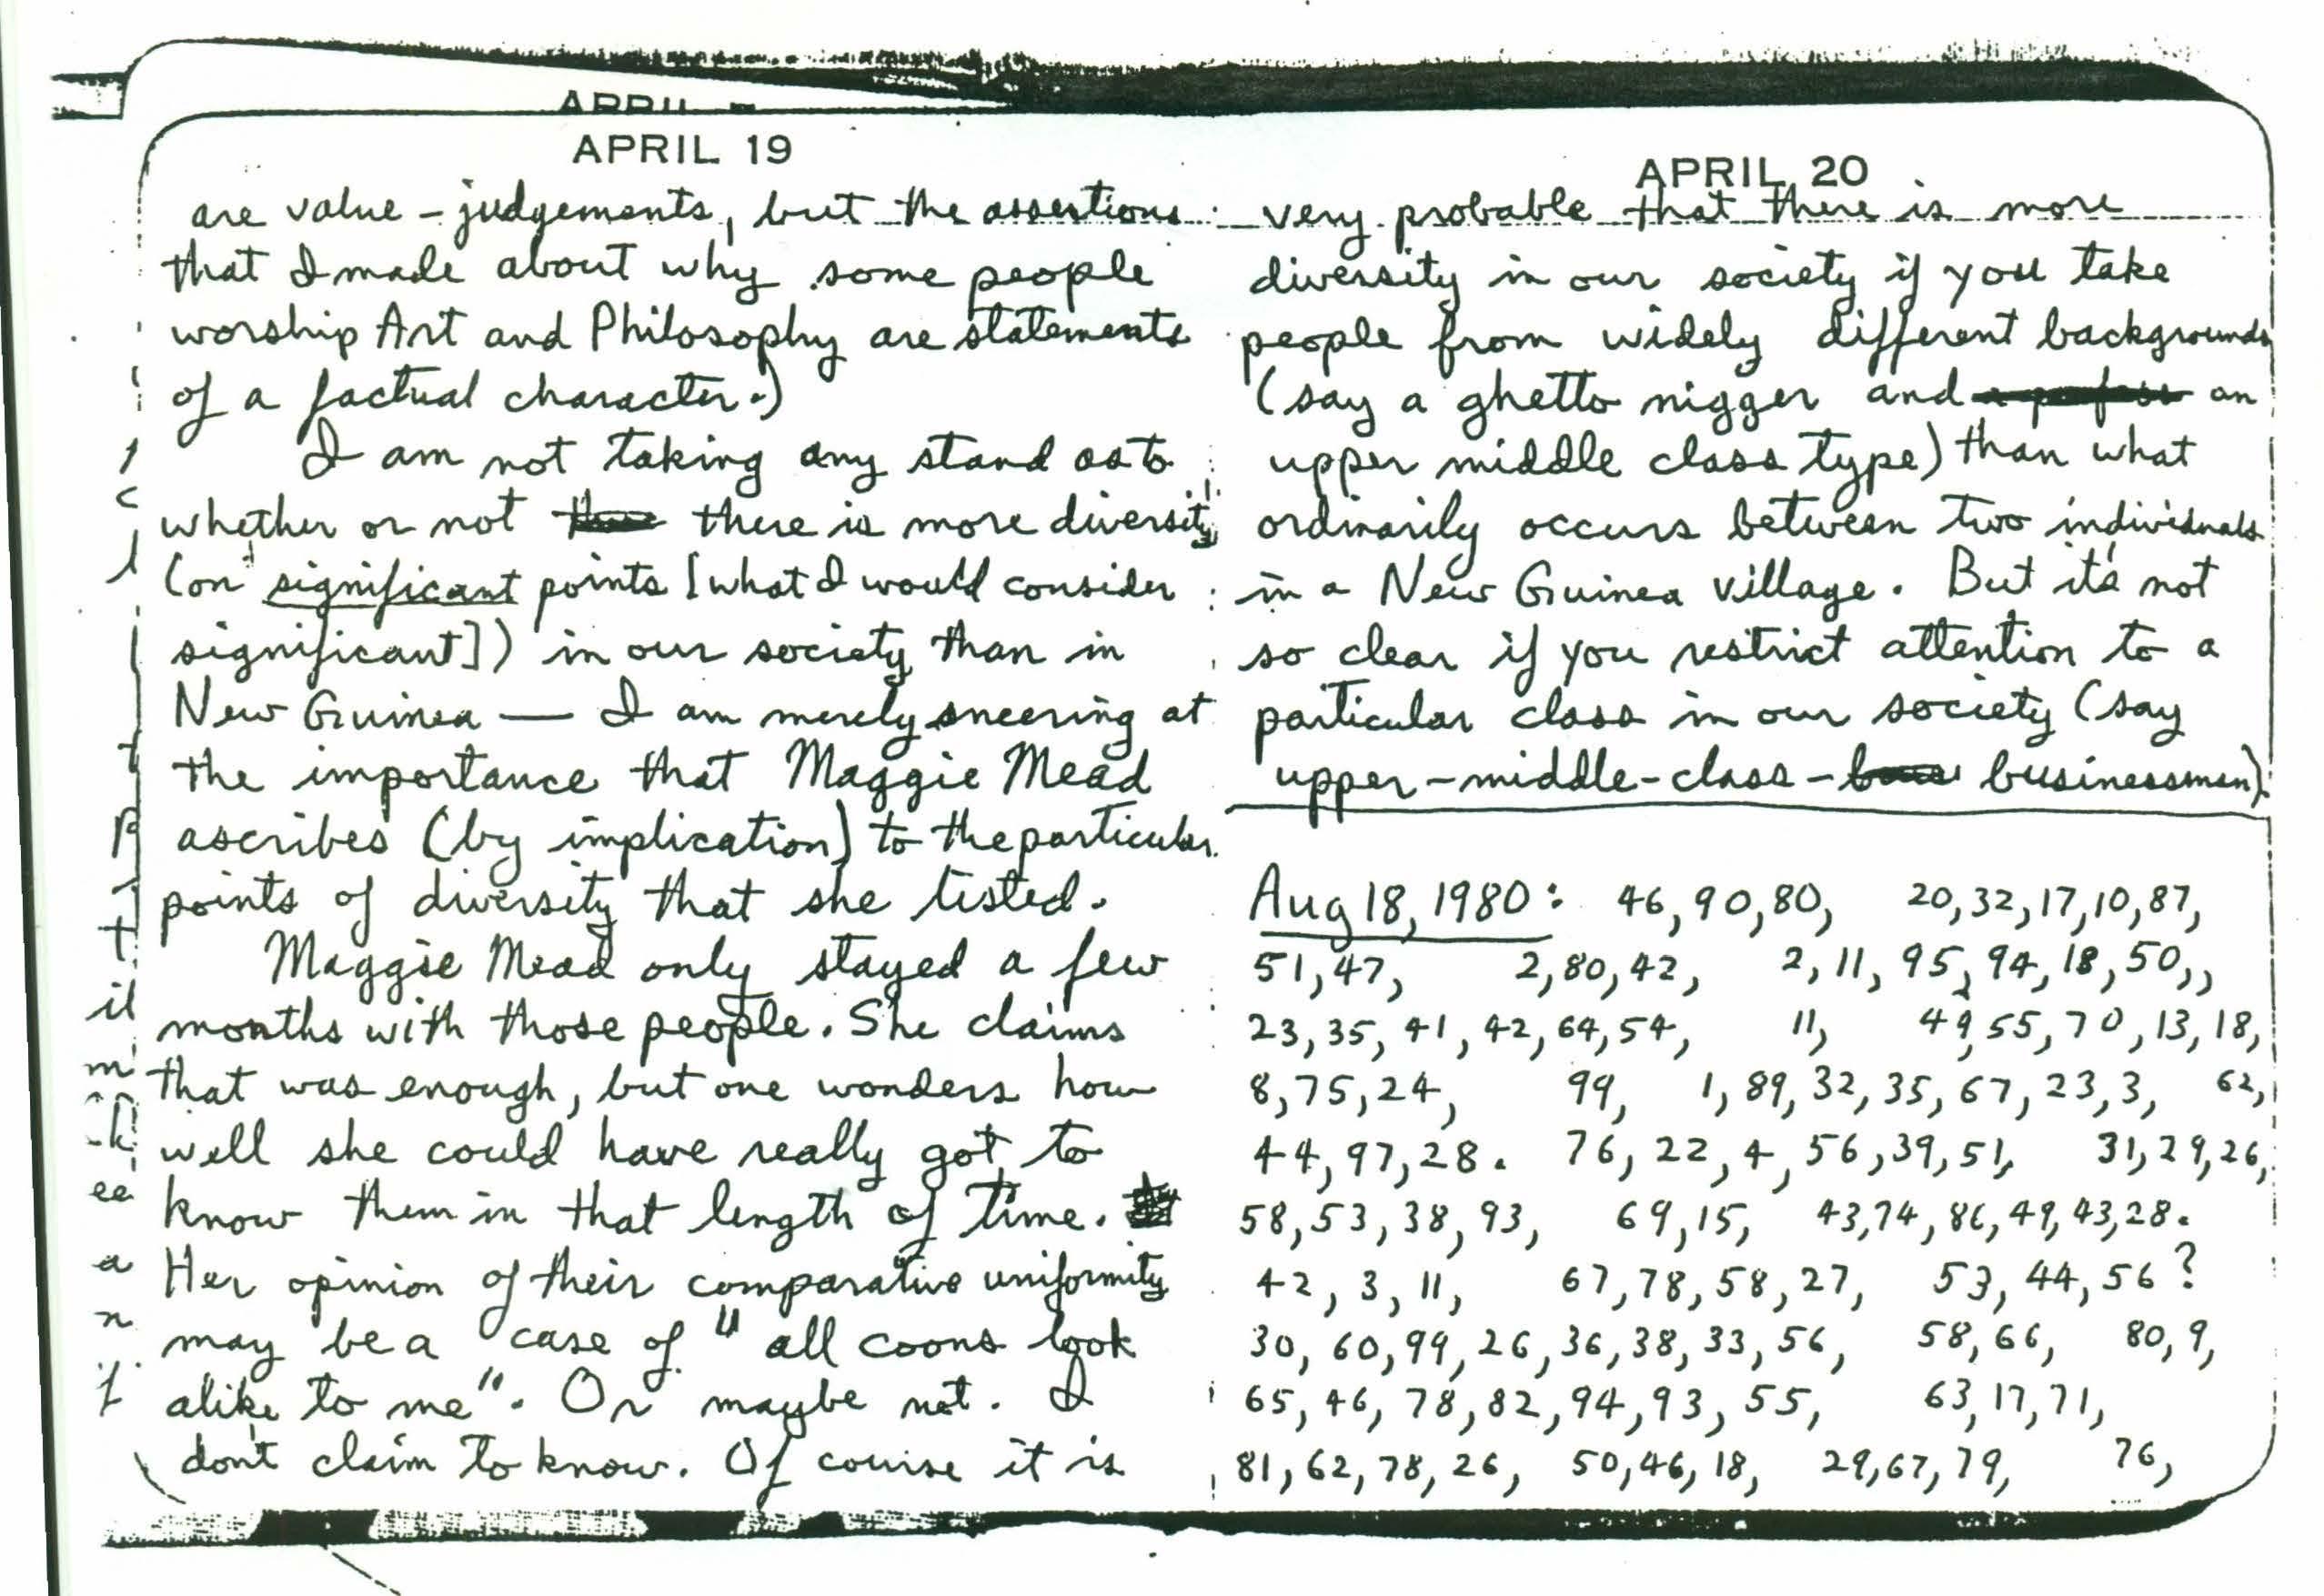 APRIL 19
are value-judgements, but the assertions
that I made about why some people
worship Art and Philosophy are statements
of a factual character.)
I am not taking any stand as to
whether or not there is more diversity
(on significant points [what I would consider
significant]) in our society than in
New Guinea — I am merely sneering at
the importance that Maggie Mead
ascribes (by implication) to the particular
points of diversity that she listed.
Maggie Mead only stayed a few
months with those people. She claims
that was enough, but one wonders how
well she could have really got to
know them in that length of time.
Her opinion of their comparative uniformity
may be a case of "all coons look
alike to me". Or maybe not. I
don't claim to know. Of course it is
APRIL 20
very probable that there is more
diversity in our society if you take
people from widely different backgrounds
(say a ghetto nigger and an
upper middle class type) than what
ordinarily occurs between two individuals
in a New Guinea village. But it's not
so clear if you restrict attention to a
particular class in our society (say
upper-middle-class- businessmen).
Aug 18, 1980: 46, 90, 80, 20, 32, 17, 10, 87,
51, 47, 2, 80, 42, 2, 11, 95, 94, 18, 50,,
23, 35, 41, 42, 64, 54, 11, 49, 55, 70, 13, 18,
8, 75, 24, 99, 1, 89, 32, 35, 67, 23, 3, 62,
44, 97, 28. 76, 22, 4, 56, 39, 51, 31, 29, 26,
58, 53, 38, 93, 69, 15, 43, 74, 86, 49, 43, 28.
42, 3, 11, 67, 78, 58, 27, 53, 44, 56?
30, 60, 99, 26, 36, 38, 33, 56, 58, 66, 80, 9,
65, 46, 78, 82, 94, 93, 55, 63, 17, 71,
81, 62, 78, 26, 50, 46, 18, 29, 67, 79, 76,